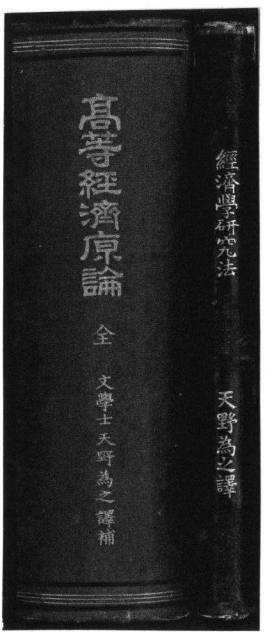 高等經濟原論
全
文學士天野為之譯補
經濟學研究法
天野為之譯